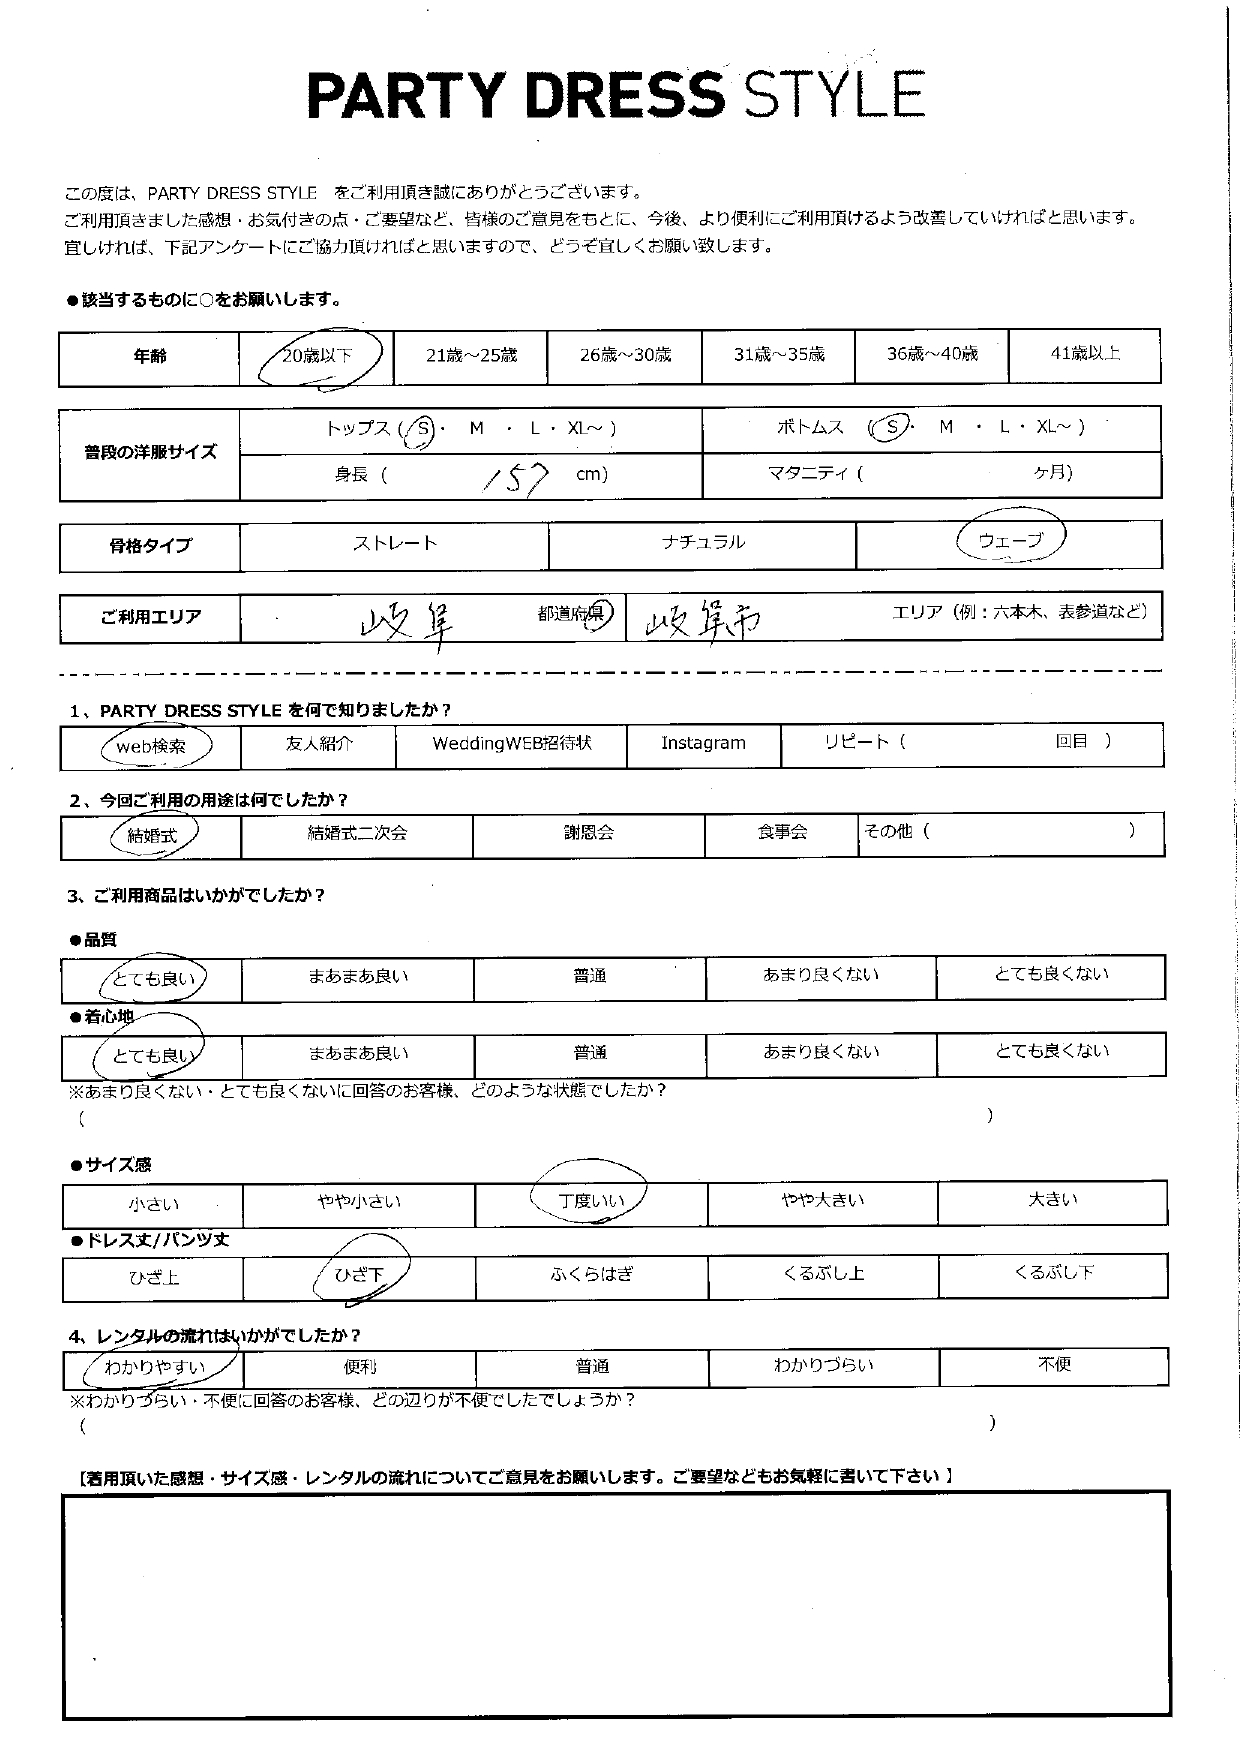 PARTY DRESS STYLE
この度は、PARTY DRESS STYLE をご利用頂き誠にありがとうございます。
ご利用頂きました感想・お気付きの点・ご要望など、皆様のご意見をもとに、今後、より便利にご利用頂けるよう改善していければと思います。
宜しければ、下記アンケートにご協力頂ければと思いますので、どうぞ宜しくお願い致します。
●該当するものに○をお願いします。
年齢 20歳以下 21歳～25歳 26歳～30歳 31歳～35歳 36歳～40歳 41歳以上
普段の洋服サイズ
トップス ( S ・ M ・ L ・ XL～ ) ボトムス ( S ・ M ・ L ・ XL～ )
身長 ( 157 cm) マタニティ ( ケ月)
骨格タイプ ストレート ナチュラル ウェーブ
ご利用エリア 岐阜 都道府県 岐阜市 エリア（例：六本木、表参道など）
1、PARTY DRESS STYLE を何で知りましたか？
web検索 友人紹介 WeddingWEB招待状 Instagram リピート（ 回目 ）
2、今回ご利用の用途は何でしたか？
結婚式 結婚式二次会 謝恩会 食事会 その他（ ）
3、ご利用商品はいかがでしたか？
●品質
とても良い まあまあ良い 普通 あまり良くない とても良くない
●着心地
とても良い まあまあ良い 普通 あまり良くない とても良くない
※あまり良くない・とても良くないに回答のお客様、どのような状態でしたか？
（ ）
●サイズ感
小さい やや小さい 丁度いい やや大きい 大きい
●ドレス丈/パンツ丈
ひざ上 ひざ下 ふくらはぎ くるぶし上 くるぶし下
4、レンタルの流れはいかがでしたか？
わかりやすい 便利 普通 わかりづらい 不便
※わかりづらい・不便に回答のお客様、どの辺りが不便でしたでしょうか？
（ ）
【着用頂いた感想・サイズ感・レンタルの流れについてご意見をお願いします。ご要望などもお気軽に書いて下さい】